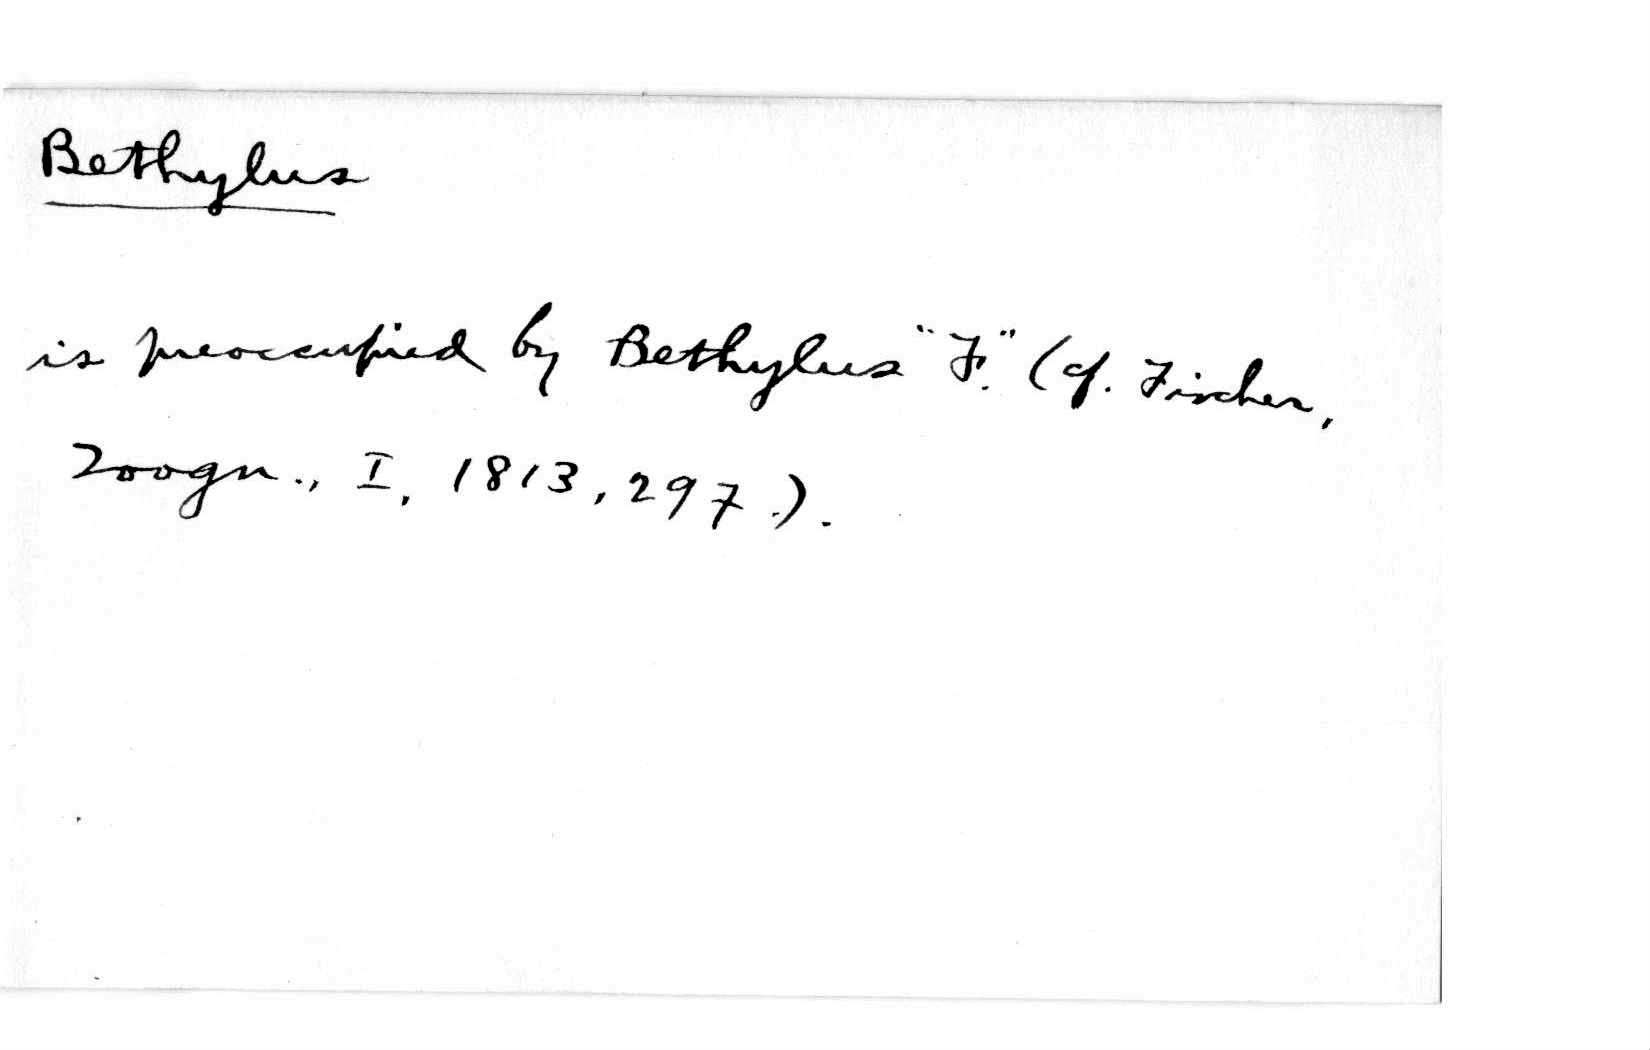 Bethylus
is preoccupied by Bethylus "F." (cf. Fischer,
Zoogn., I, 1813, 297.).